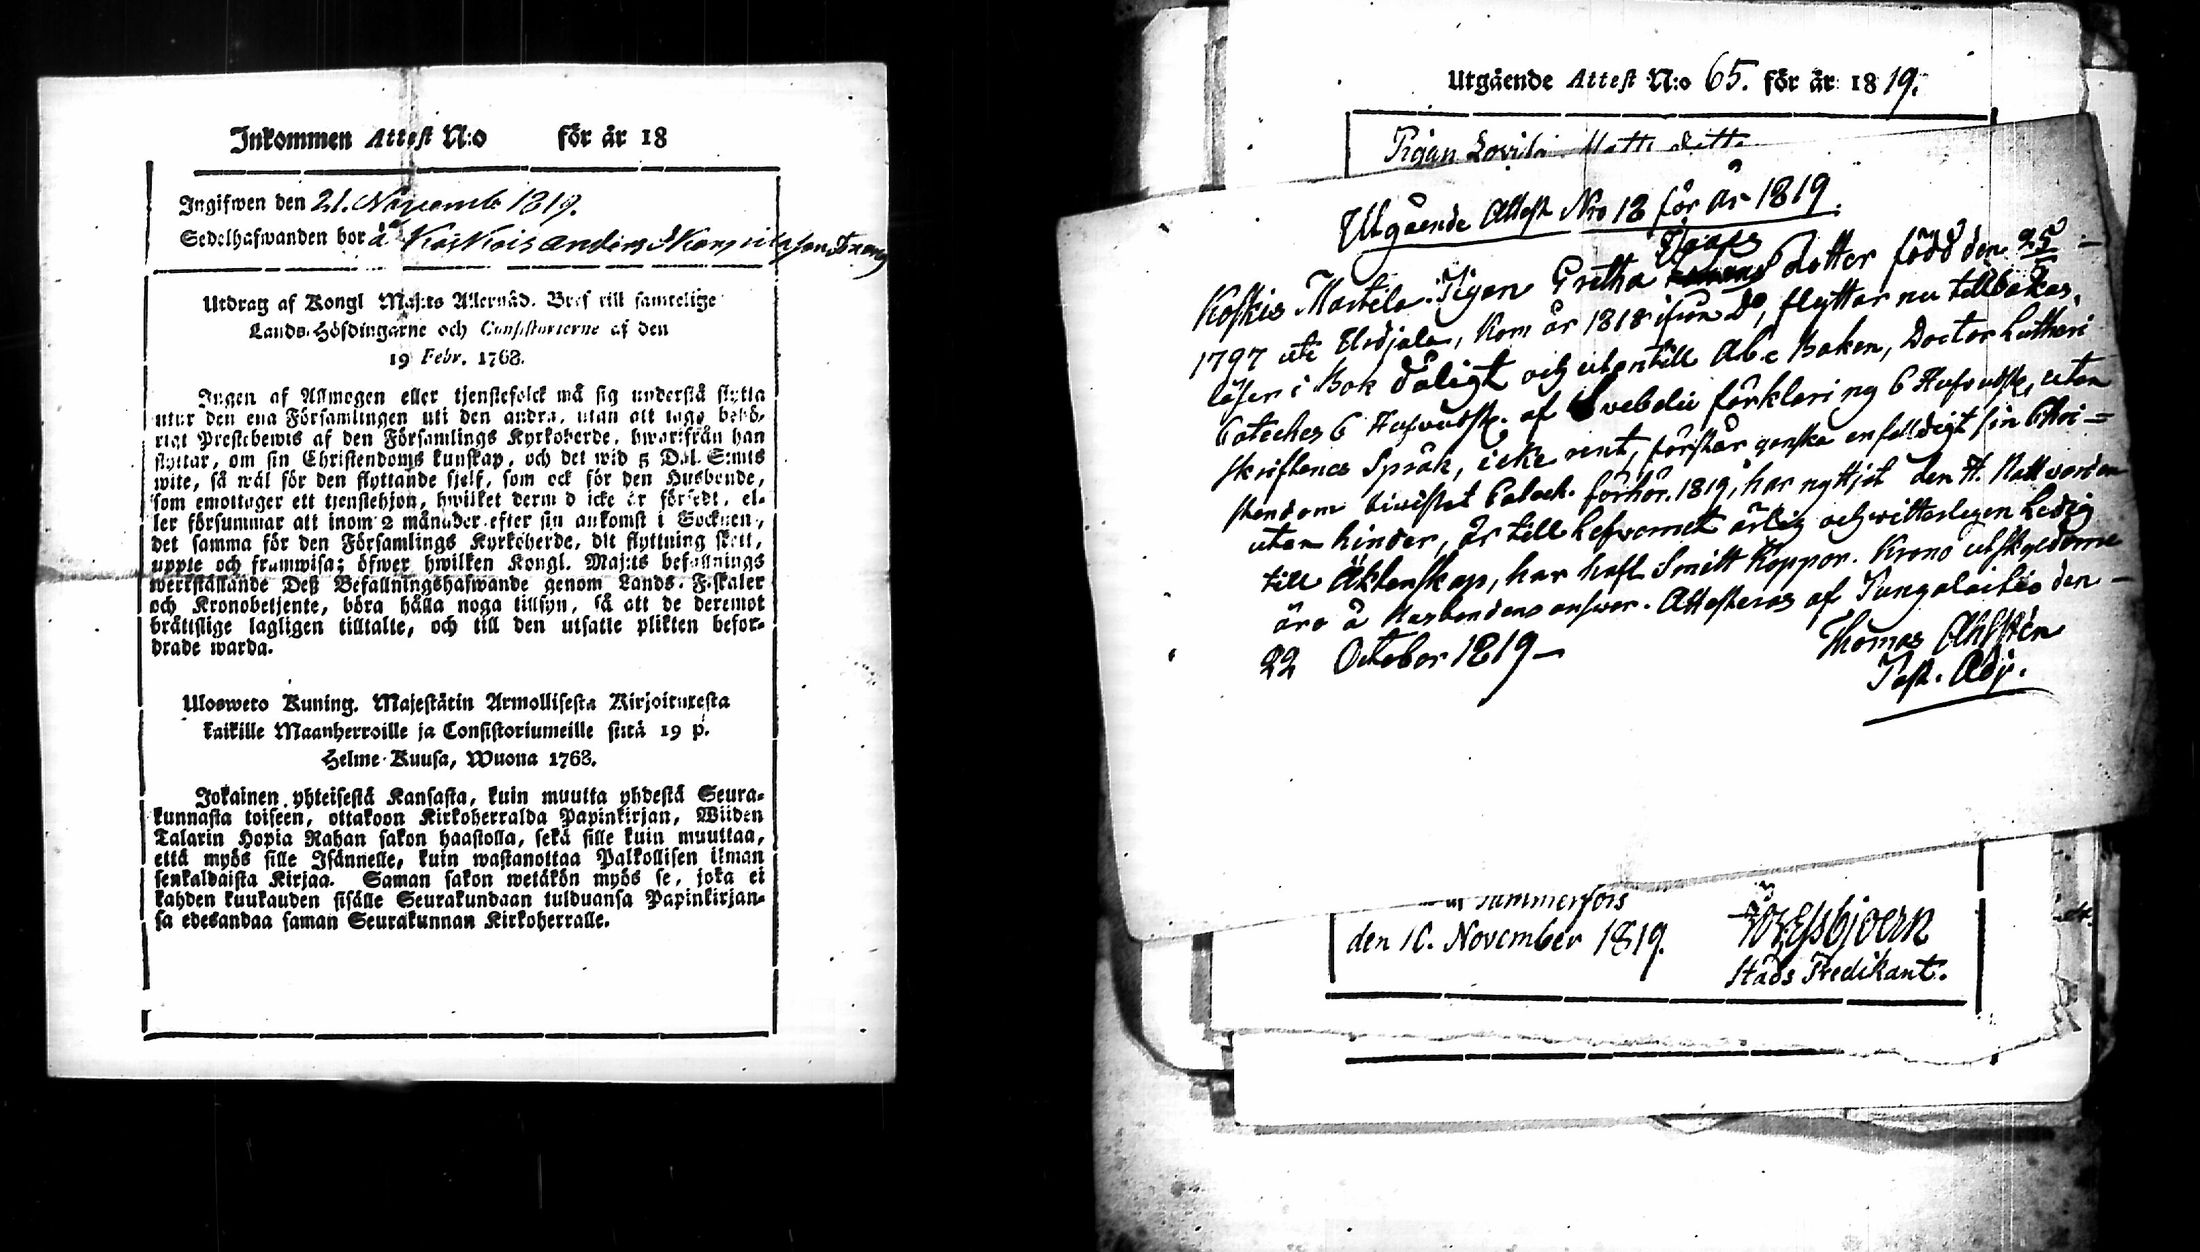 Inkommen Attest N:o för år 18
Ingifwen den 21. Novemb 1819.
Sedelhafwanden bor å Koskois anders
Utdrag af Kongl Maj:ts Allernåd. Bref till samtelige
Lands-Höfdingarne och Consistorierne af den
19 Febr. 1763.
Ingen af Allmogen eller tjenstefolck må sig understå flytta
utur den ena Församlingen uti den andra, utan att taga behö-
rigt Prestebewis af den Församlings Kyrkoherde, hwarifrån han
flyttar, om sin Christendoms kunskap, och det wid 5 Dal. S:mts
wite, så wäl för den flyttande sjelf, som ock för den Husbonde,
som emottager ett tjenstehjon, hwilket dermed icke är försedt, el-
ler försummar att inom 2 månader efter sin ankomst i Socknen,
det samma för den Församlings Kyrkoherde, dit flyttning skett,
uppte och framwisa; öfwer hwilken Kongl. Maj:ts befallnings
werkställande Deß Befallningshafwande genom Lands-Fiskaler
och Kronobetjente, böra hålla noga tillsyn, så att de deremot
bråttslige lagligen tilltalte, och till den utsatte plikten befor-
drade warda.
Ulosweto Kuning. Majestätin Armollisesta Kirjoituxesta
kaikille Maanherroille ja Consistoriumeille siitä 19 p.
Helme-Kuusa, Wuona 1763.
Jokainen yhteisestä Kansasta, kuin muutta yhdestä Seura-
kunnasta toiseen, ottakoon Kirkoherralda Papinkirjan, Wiiden
Talarin Hopia Rahan sakon haastolla, sekä sille kuin muuttaa,
että myös sille Isännelle, kuin wastanottaa Palkollisen ilman
senkaldaista Kirjaa. Saman sakon wetäkön myös se, joka ei
kahden kuukauden sisälle Seurakundaan tulduansa Papinkirjan-
sa edesandaa saman Seurakunnan Kirkoherralle.
Utgående Attest N:o 65. för år 1819.
Pigan Lovisa Matts dotter
Utgående Attest Nro 18 för år 1819.
Koskis Martela Pigan Gretha dotter född den 25
1797 uti Urdjala, kom år 1818 ifrån Do, flyttar nu tillbakas,
läser i Bok dåligt och utantill Abc Boken, Doctor Lutheri
Cateches 6 Hufvudst. af Svebelii förklaring 6 Hufvudst. utan
skriftenes Språk, icke rent, förstår ganska enfaldigt sin Chri-
stendom bivistat Catech. förhör 1819, har nyttjat den H. Nattvarden
utan hinder, är till lefvernet ärlig och vitterligen Ledig
till Äktenskap, har haft Smitt Koppor. Krono utskylderne
äro å Husbondens answar. Attesteras af Tungalaitio den
22 October 1819
Thomas Ahlstén
Past. Adj.
Tammerfors
den 10. November 1819.
Stads Predikant.